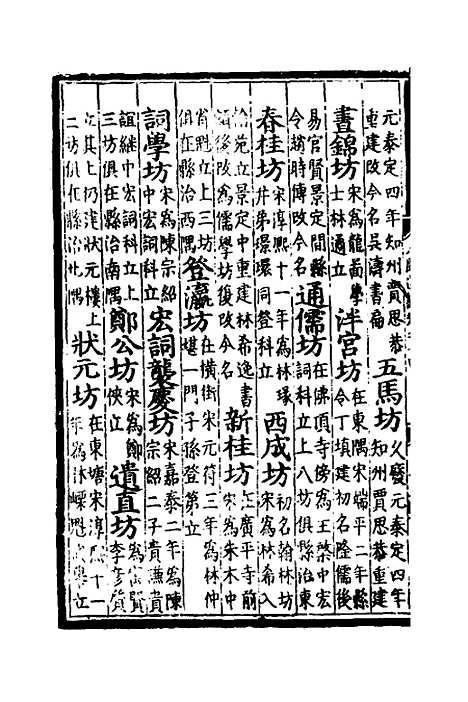 元泰定四年知州賈思恭
重建改今名吳濤書扁
五馬坊
久廢元泰定四年
知州賈思恭重建
晝錦坊
宋為龍圖學
士林遹立
泮宮坊
在東隅宋端平二年縣
令丁填建初名隆儒後
易官賢景定間縣
令趙時傳改今名
通儒坊
在佛頂寺傍為王槩中宏
詞科立上八坊俱縣治東
春桂坊
宋淳熙十一年為林瑑
井弟璟環同登科立
西成坊
初名翰林坊
宋為林希入
苑立景定中重建林希逸書
後改為儒學坊後改今名
新桂坊
在廣平寺前
宋為朱木中
省魁立上三坊
俱在縣治西隅
登瀛坊
在橫街宋元符三年為林仲
堪一門子孫登第立
詞學坊
宋為陳宗紹
中宏詞科立
宏詞襲慶坊
宋嘉泰二年為陳
宗紹二子貴謙貴
誼繼中宏詞科立上
三坊俱在縣治南隅
鄭公坊
宋為鄭
俠立
遺直坊
為賢
李彥質
立其上仍建狀元樓上
二坊俱在縣治北隅
狀元坊
在東塘宋淳熙十一
年為林嶸魁大學立